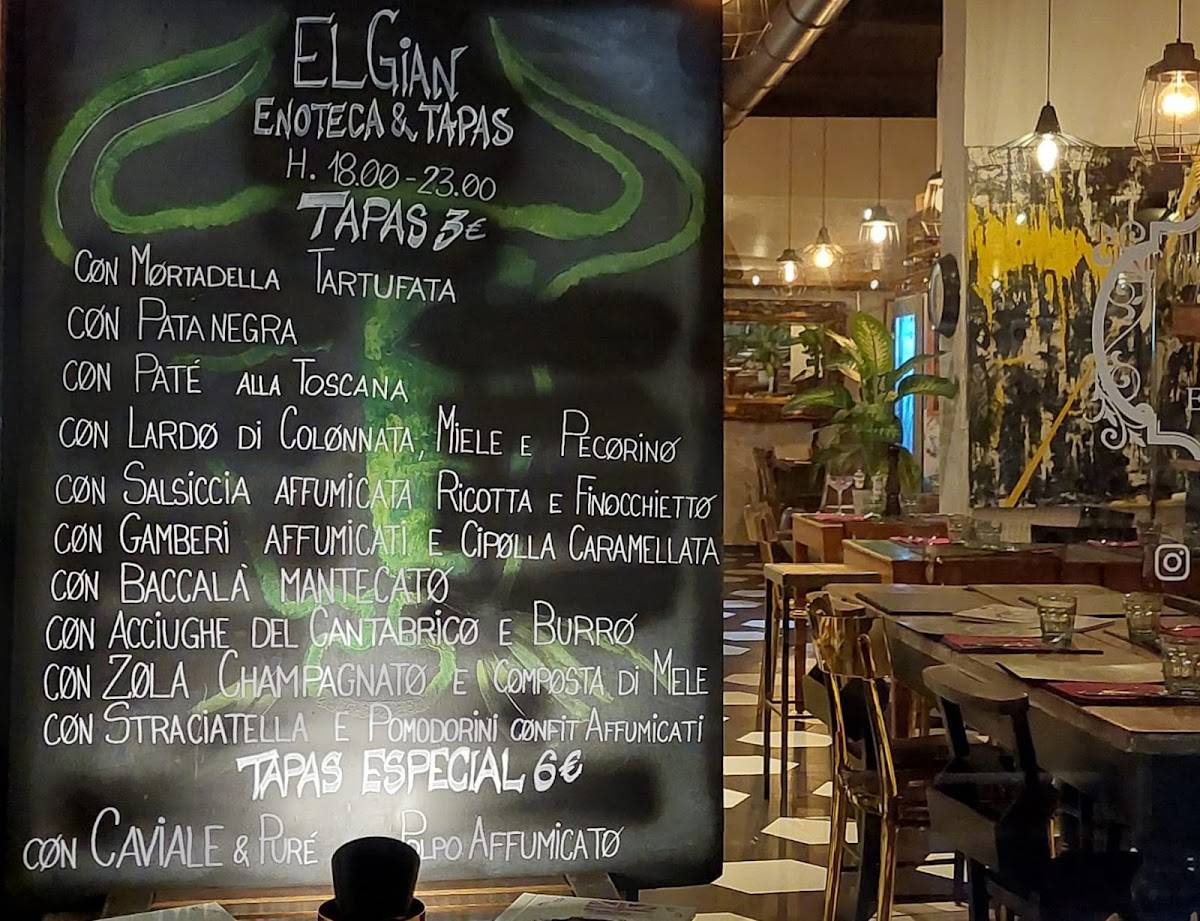 EL GiAN
ENOTECA & TAPAS
H. 18.00 - 23.00
TAPAS 3€
CØN MØRTADELLA TARTUFATA
CØN PATA NEGRA
CØN PATÉ ALLA TOSCANA
CØN LARDØ Di COLØNNATA, MiELE E PECØRINØ
CØN SALSICCIA AFFUMICATA RICOTTA E FINØCCHIETTØ
CØN GAMBERi AFFUMICATI E CiPØLLA CARAMELLATA
CØN BACCALÀ MANTECATØ
CØN ACCIUGHE DEL CANTABRICØ E BURRØ
CØN ZØLA, CHAMPAGNATØ E CØMPØSTA Di MELE
CØN STRACIATELLA E POMODORINI CØNFIT AFFUMICATI
TAPAS ESPECIAL 6€
CØN CAVIALE & PURÉ POLPO AFFUMICATØ